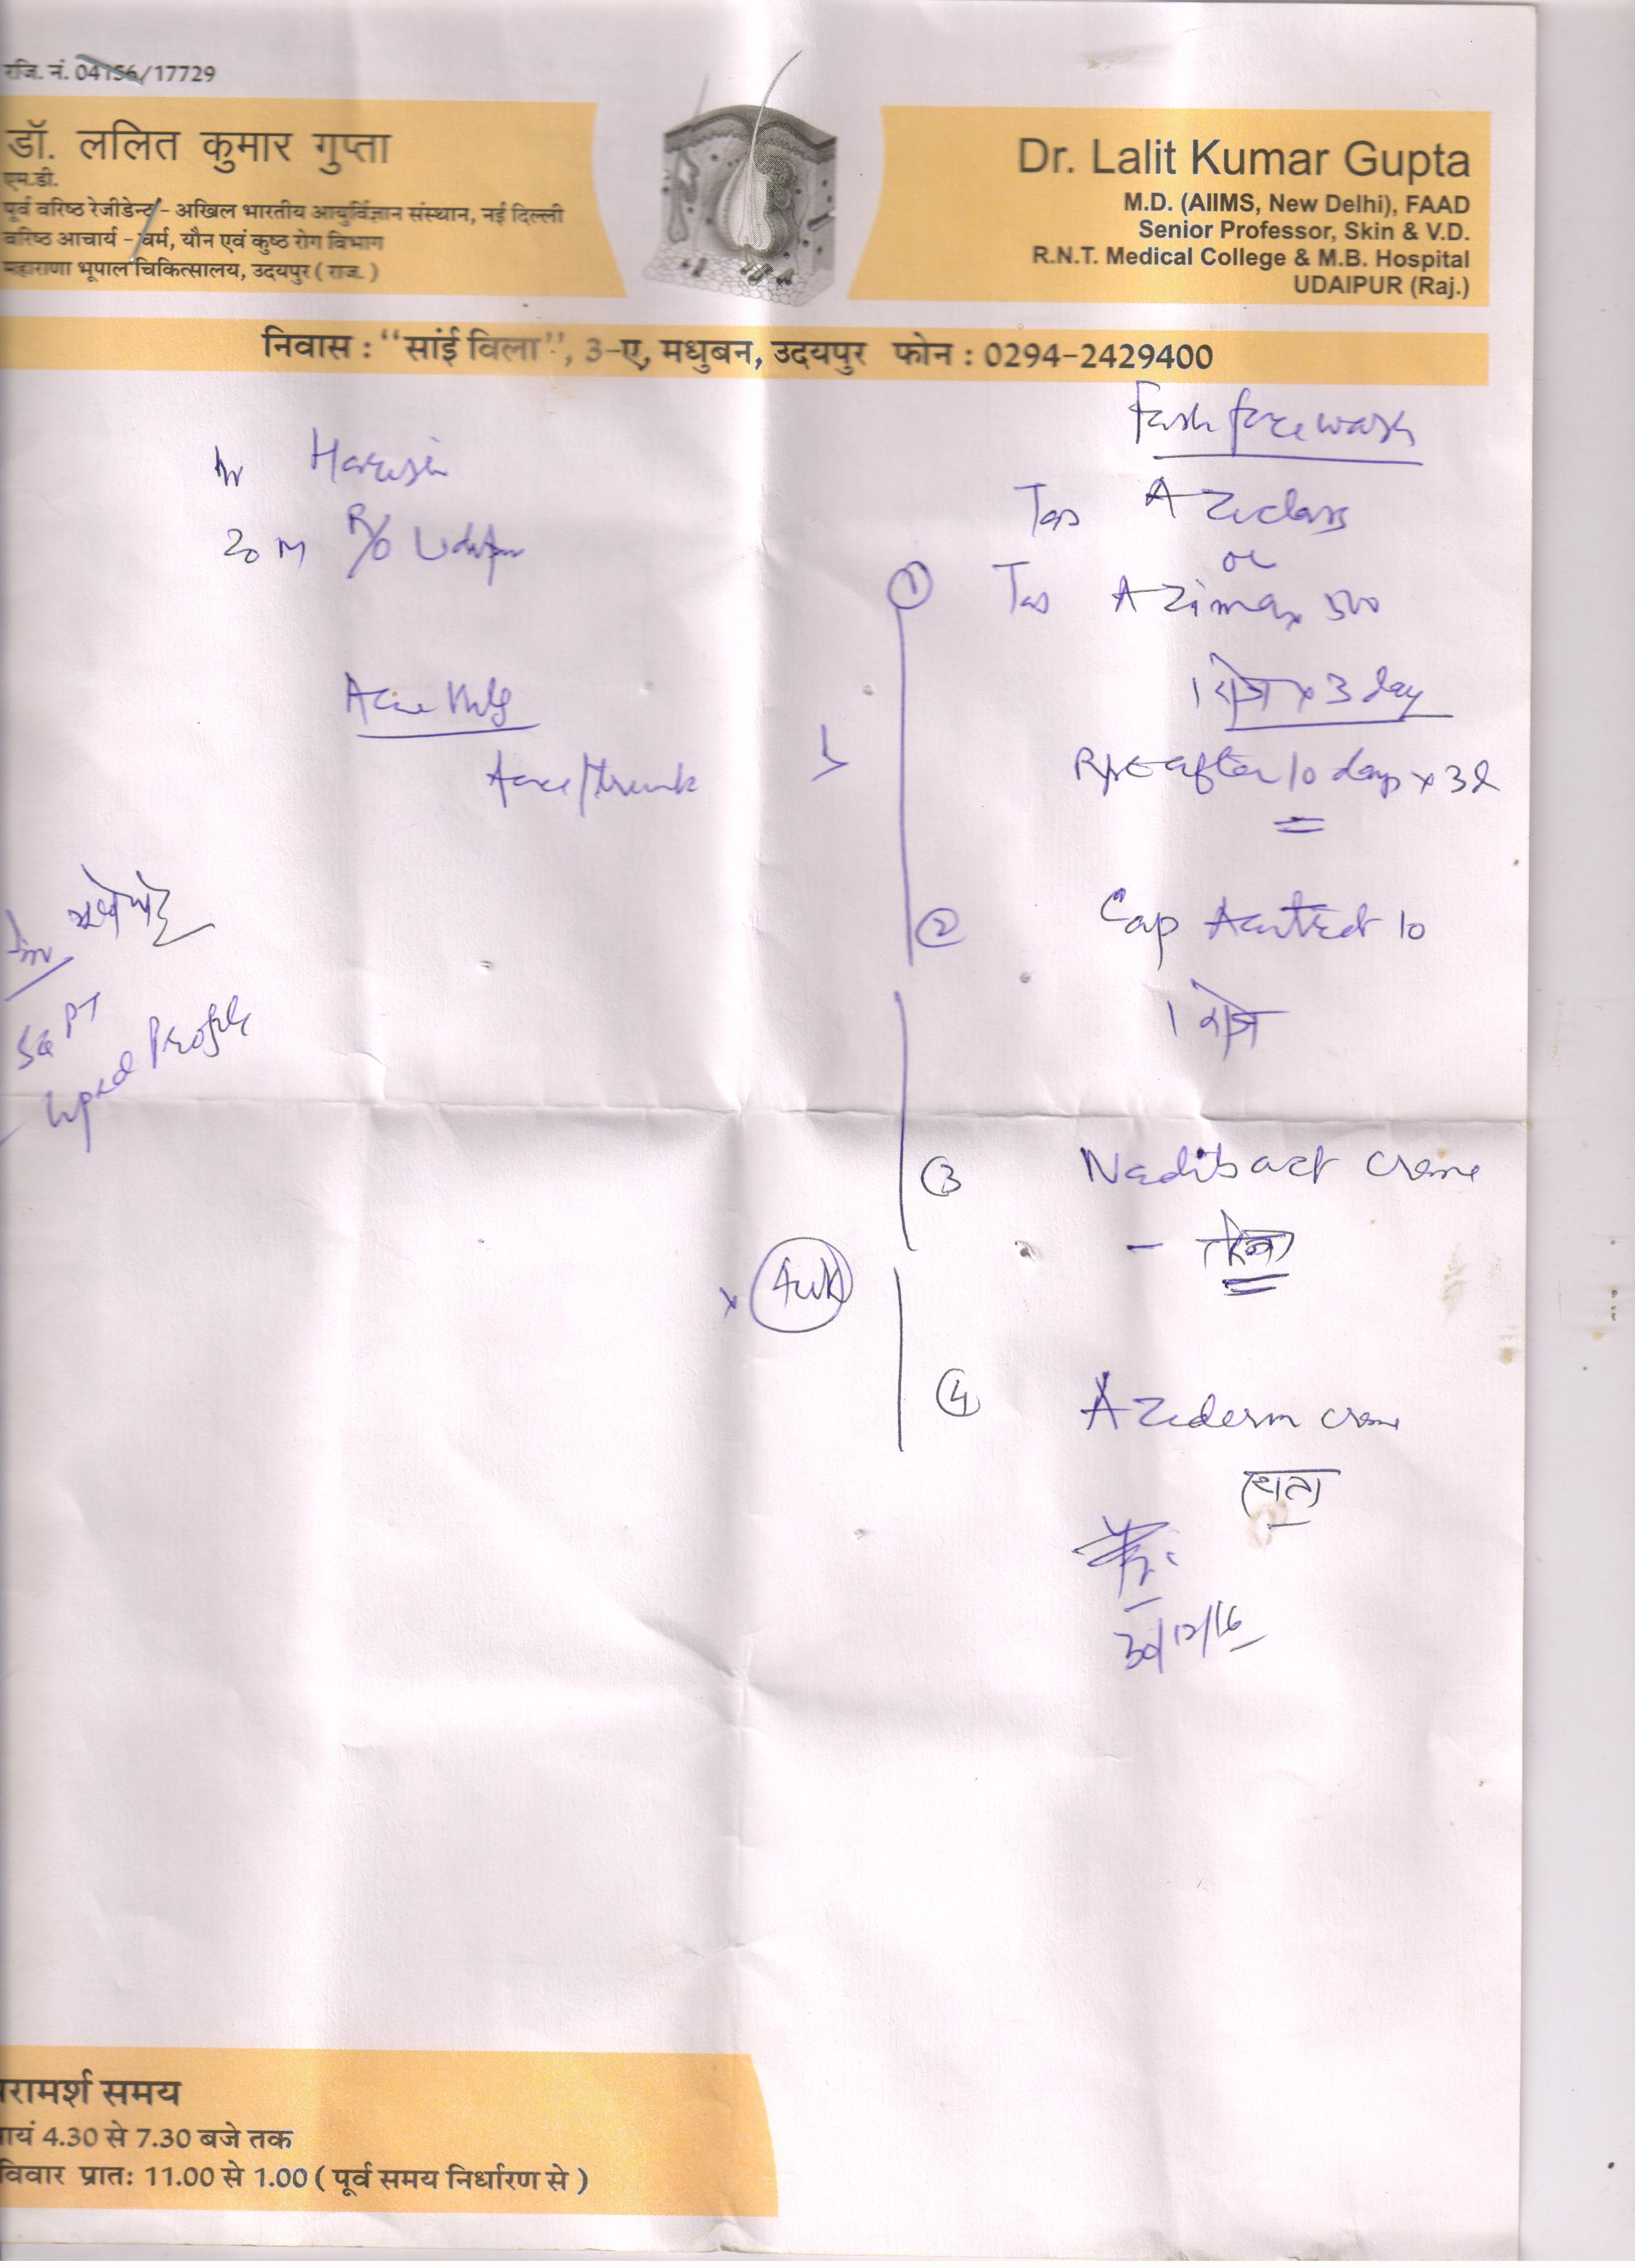 रजि. नं. 04156/17729
डॉ. ललित कुमार गुप्ता
एम.डी.
पूर्व वरिष्ठ रेजीडेन्ट - अखिल भारतीय आयुर्विज्ञान संस्थान, नई दिल्ली
वरिष्ठ आचार्य - चर्म, यौन एवं कुष्ठ रोग विभाग
महाराणा भूपाल चिकित्सालय, उदयपुर ( राज. )
Dr. Lalit Kumar Gupta
M.D. (AIIMS, New Delhi), FAAD
Senior Professor, Skin & V.D.
R.N.T. Medical College & M.B. Hospital
UDAIPUR (Raj.)
निवास : "सांई विला", 3-ए, मधुबन, उदयपुर फोन : 0294-2429400
20 M R/o Udaipur
face/trunk
भूखे पेट
SGPT
Lipid Profile
face wash
Tab
or
① Tab Azimax 500
1 रोज x 3 day
after 10 days x 3d
② Cap 10
1 रोज
③ Nadibact creme
- दिन
x 4wk
④ Aziderm creme
रात
30/12/16
परामर्श समय
सायं 4.30 से 7.30 बजे तक
रविवार प्रातः 11.00 से 1.00 ( पूर्व समय निर्धारण से )